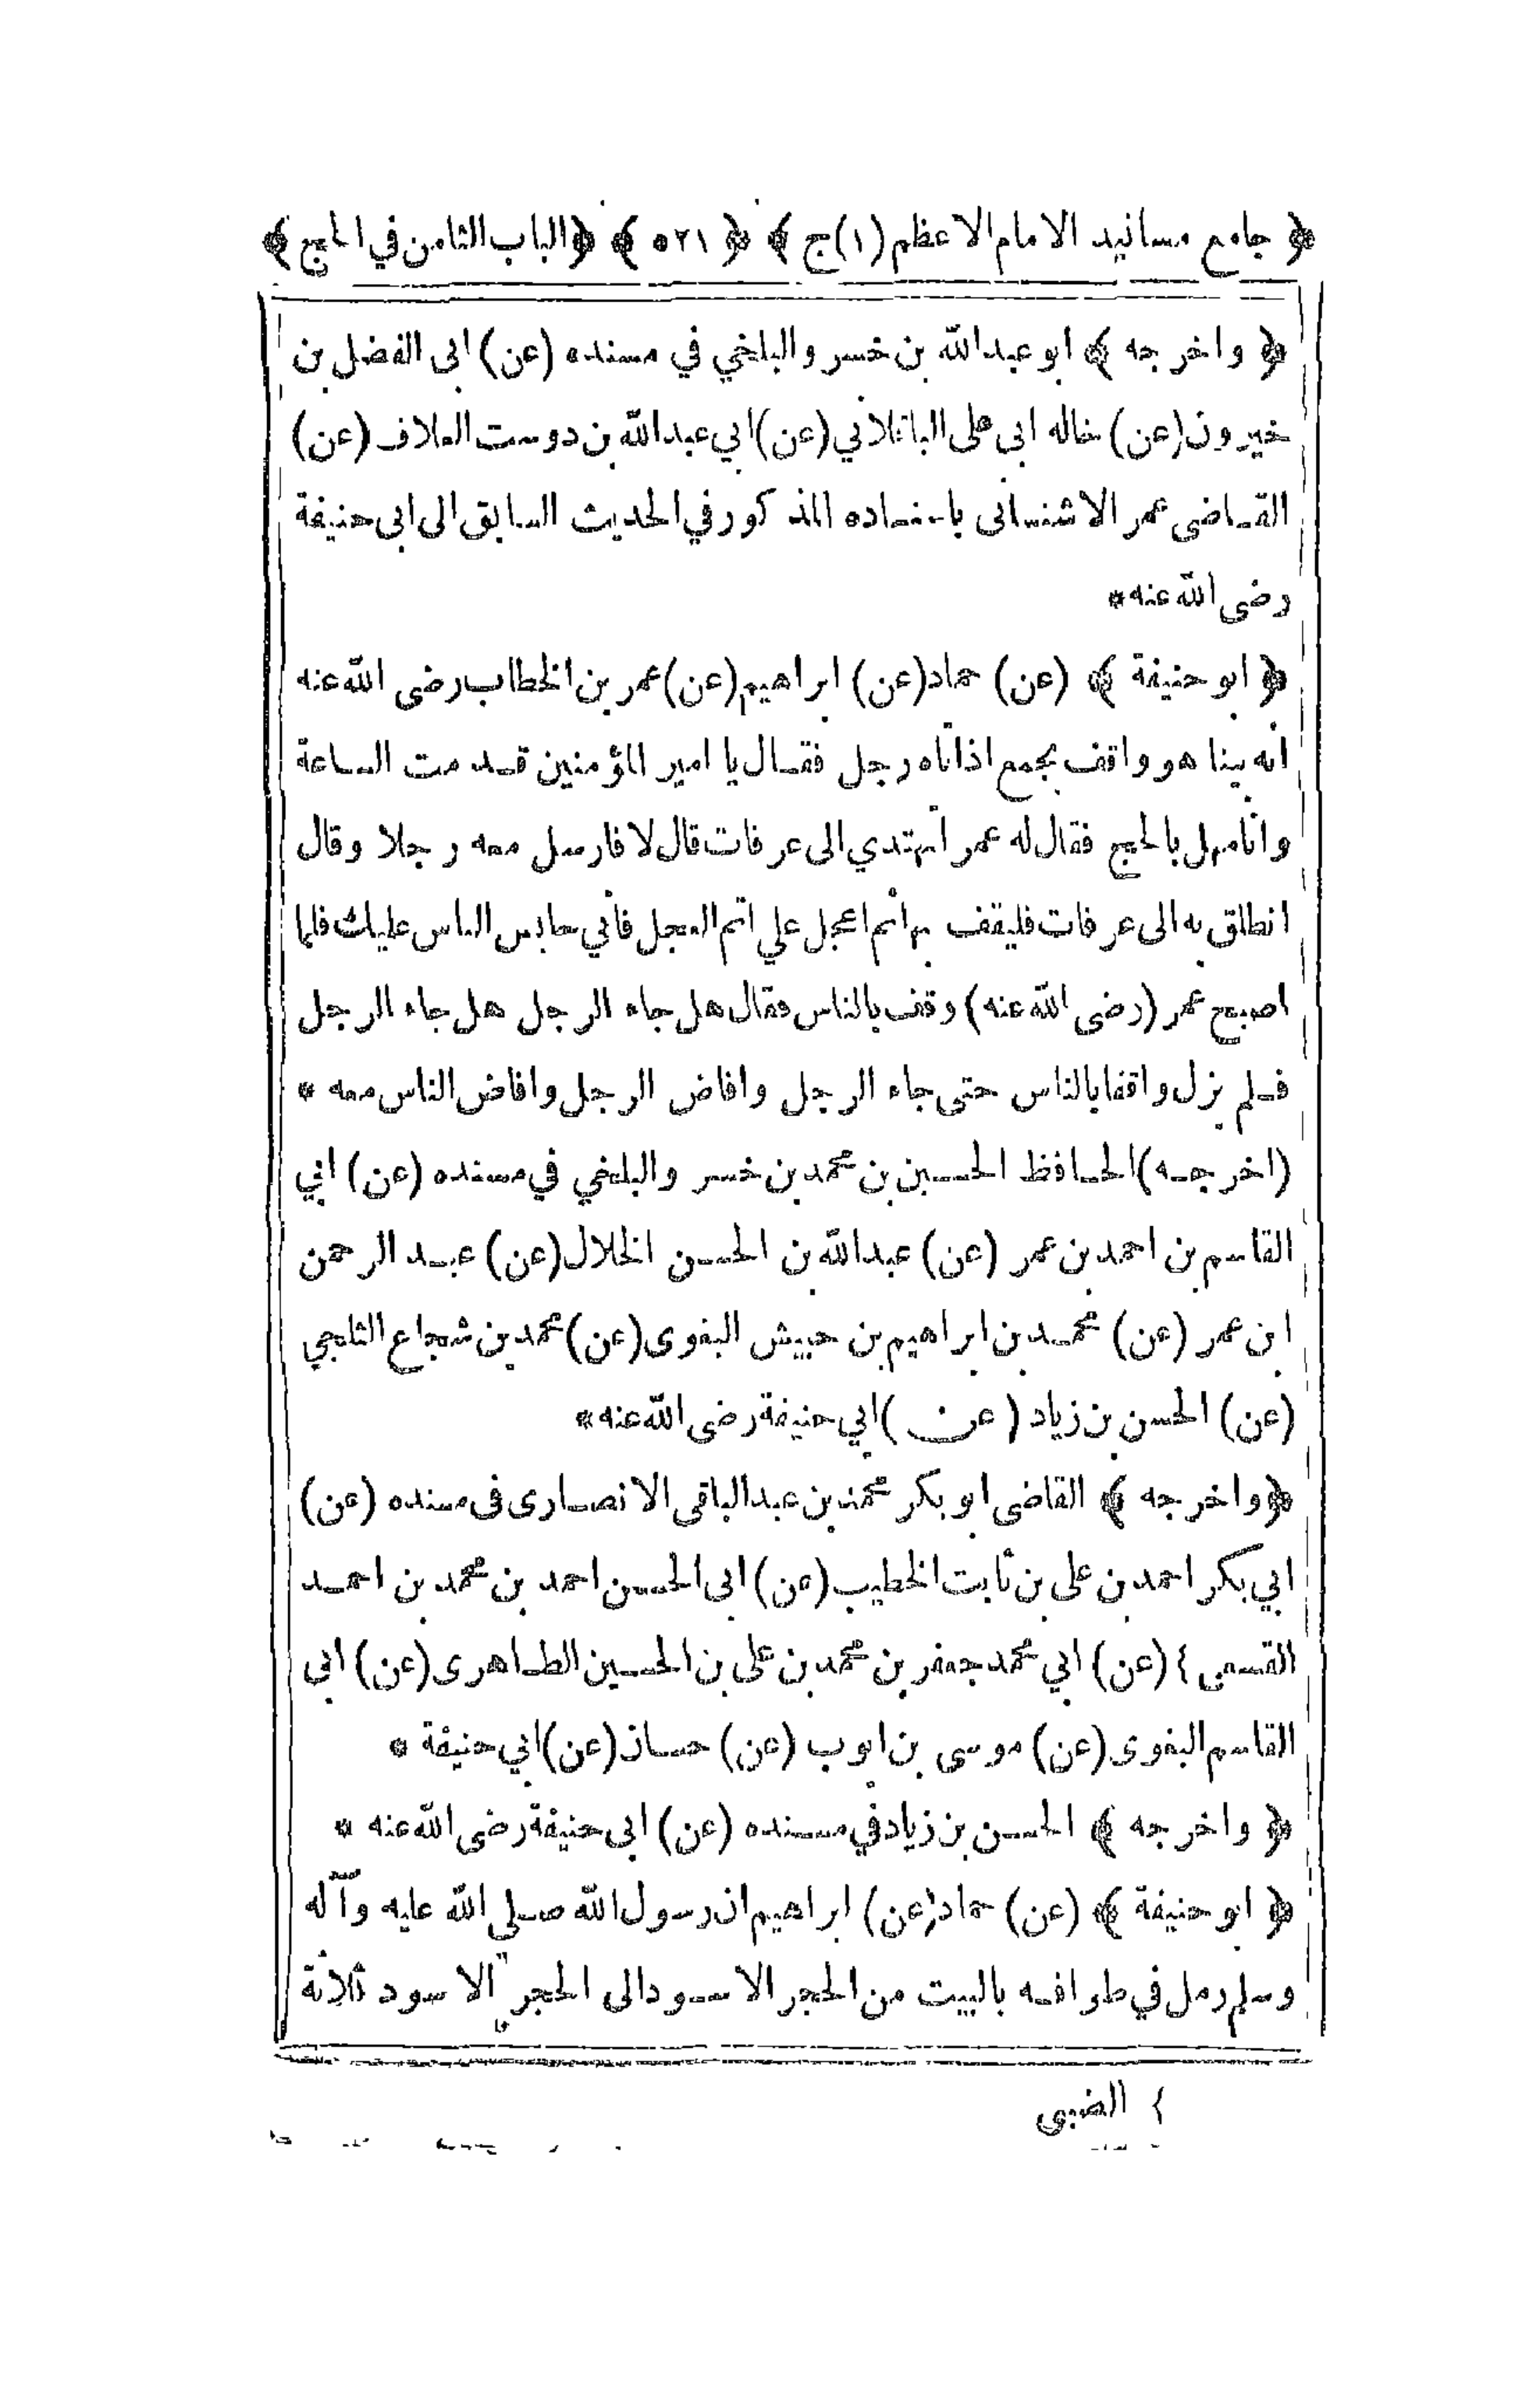 ﴿ جامع مسانيد الامام الاعظم (١)ج ﴾ ﴿ ٥٢١ ﴾ ﴿الباب الثامن في الحج ﴾
﴿ واخرجه ﴾ ابو عبدالله بن خسرو البلخي في مسنده (عن) ابى الفضل بن
خيرون (عن) خاله ابى على الباقلاني (عن) ابي عبدالله بن دوست العلاف (عن)
القاضى عمر الاشنانى باسناده المذكور في الحديث السابق الى ابى حنيفة
رضى الله عنه *
﴿ ابو حنيفة ﴾ (عن) حماد (عن) ابراهيم (عن) عمر بن الخطاب رضى الله عنه
انه بينا هو واقف بجمع اذ اتاه رجل فقال يا امير المؤمنين قدمت الساعة
وانا مهل بالحج فقال له عمر أتهتدي الى عرفات قال لا فارسل معه رجلا وقال
انطلق به الى عرفات فليقف بها ثم اعجل علي اتم العجل فاني حابس الناس عليك فلما
اصبح عمر (رضى الله عنه) وقف بالناس فقال هل جاء الرجل هل جاء الرجل
فلم يزل واقفا بالناس حتى جاء الرجل وافاض الرجل وافاض الناس معه *
(اخرجه) الحافظ الحسين بن محمد بن خسرو البلخي في مسنده (عن) ابي
القاسم بن احمد بن عمر (عن) عبدالله بن الحسن الخلال (عن) عبد الرحمن
ابن عمر (عن) محمد بن ابراهيم بن حبيش البغوى (عن) محمد بن شجاع الثلجي
(عن) الحسن بن زياد (عن) ابي حنيفة رضى الله عنه *
﴿واخرجه ﴾ القاضى ابو بكر محمد بن عبدالباقى الانصارى فى مسنده (عن)
ابي بكر احمد بن على بن ثابت الخطيب (عن) ابى الحسن احمد بن محمد بن احمد
القسمى } (عن) ابي محمد جعفر بن محمد بن على بن الحسين الطاهرى (عن) ابي
القاسم البغوى (عن) موسى بن ايوب (عن) حسان (عن) ابي حنيفة *
﴿ واخرجه ﴾ الحسن بن زياد في مسنده (عن) ابى حنيفة رضى الله عنه *
﴿ ابو حنيفة ﴾ (عن) حماد (عن) ابراهيم ان رسول الله صلى الله عليه وآله
وسلم رمل في طوافه بالبيت من الحجر الاسود الى الحجر الاسود ثلاثة
} الضبى